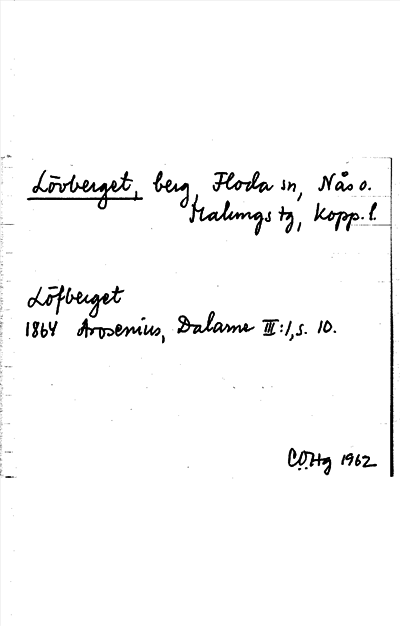 Lövberget, berg, Floda sn, Nås o.
Malungs tg, Kopp. l.
Löfberget
1864 Arosenius, Dalarne III:1, s. 10.
C.O.Hg 1962